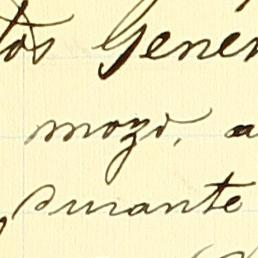 tos Gener
mozo, a
durante